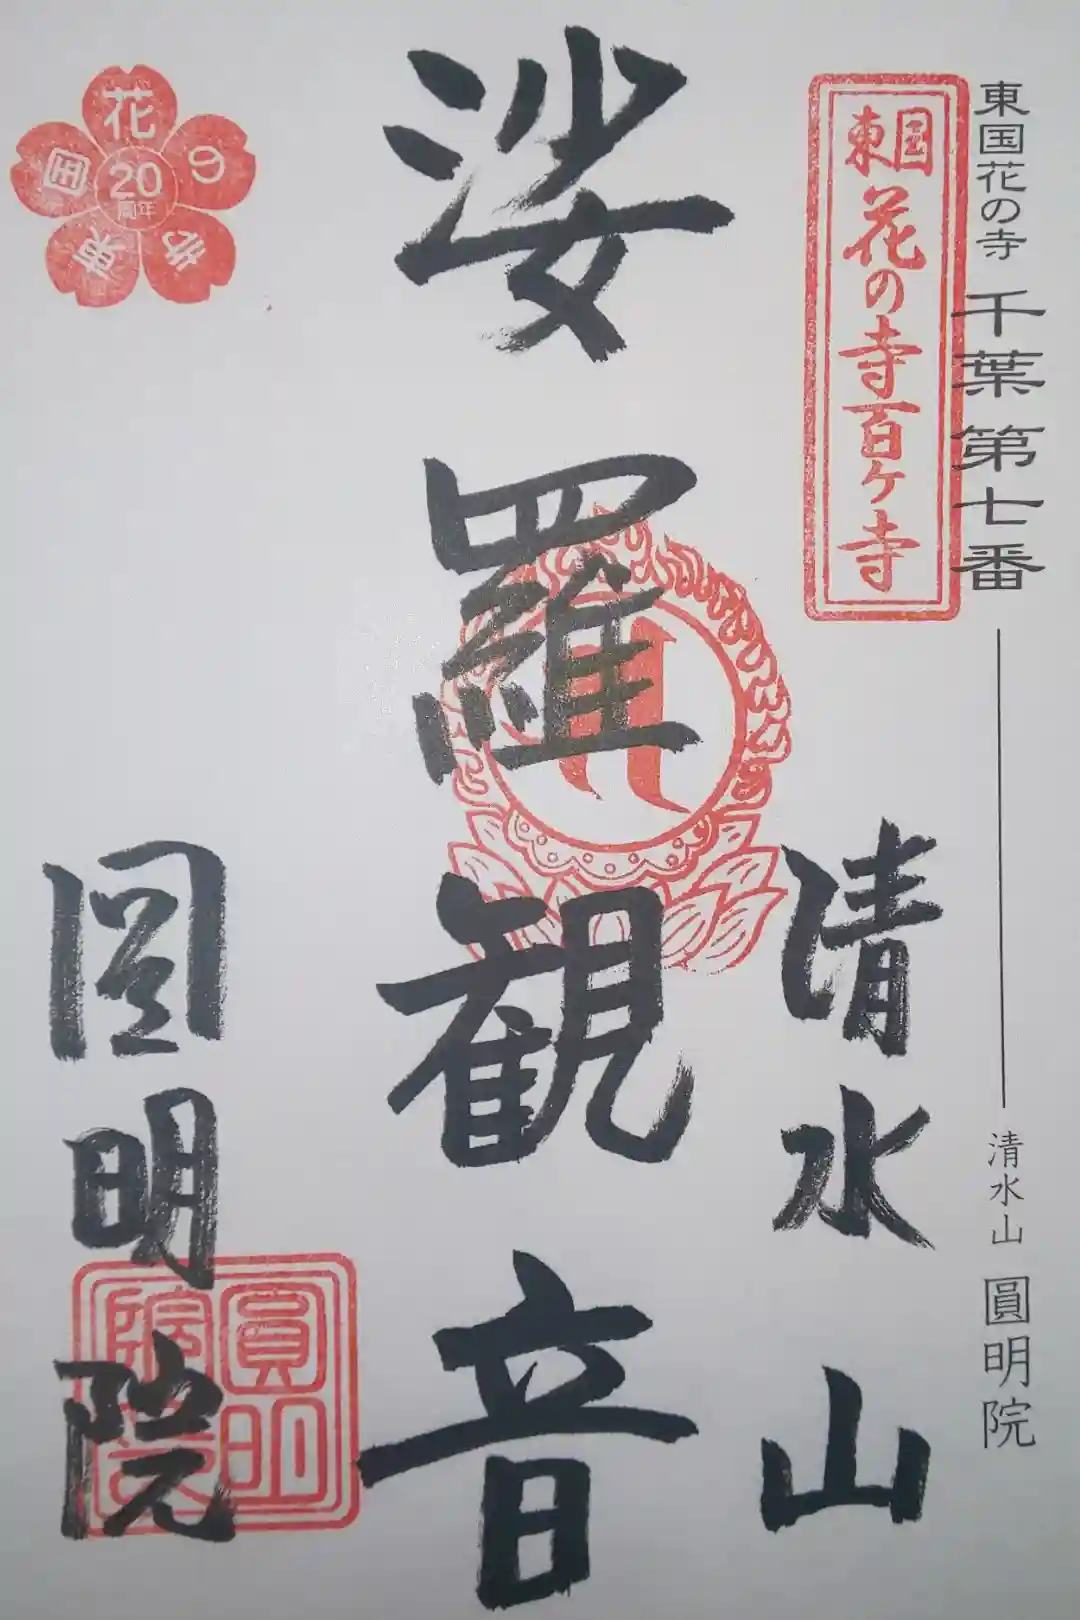 東国花の寺 千葉第七番 清水山 圓明院
東国
花の寺百ケ寺
清水山
娑羅観音
圓明院
東国花の寺
20
周年
圓明
院